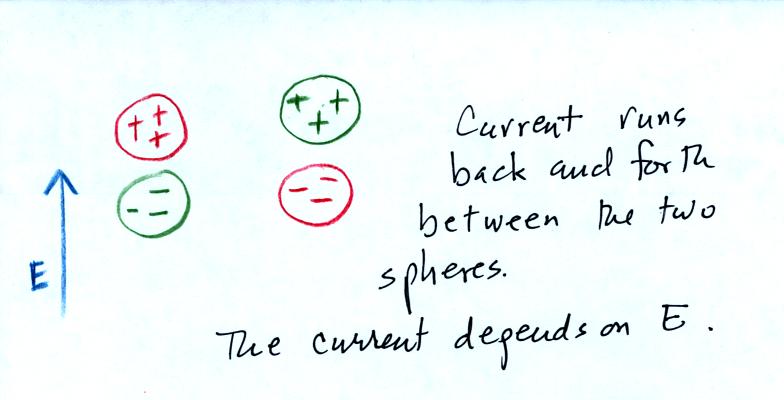 + + +
+ + +
- - -
- - -
E
Current runs
back and forth
between the two
spheres.
The current depends on E.